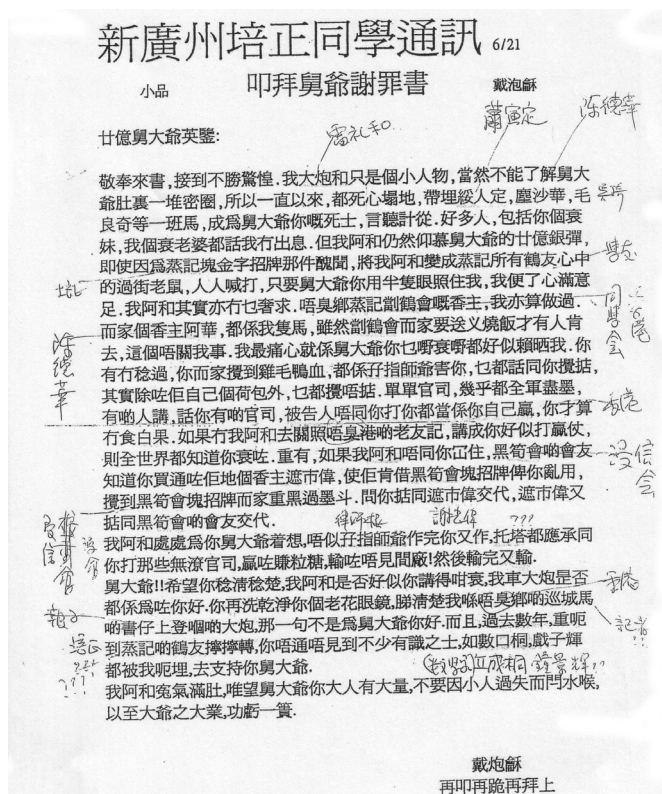 新廣州培正同學通訊 6/21
小品 叩拜舅爺謝罪書 戴泡龢
雷礼和 蕭寅定 陈德華
廿億舅大爺英鑒:
敬奉來書,接到不勝驚惶.我大炮和只是個小人物,當然不能了解舅大
爺肚裏一堆密圈,所以一直以來,都死心塌地,帶埋綏人定,塵沙華,毛
良奇等一班馬,成爲舅大爺你嘅死士,言聽計從.好多人,包括你個衰
妹,我個衰老婆都話我冇出息.但我阿和仍然仰慕舅大爺的廿億銀彈,
即使因爲蒸記塊金字招牌那件醜聞,將我阿和變成蒸記所有鶴友心中
的過街老鼠,人人喊打,只要舅大爺你用半隻眼照住我,我便了心滿意
足.我阿和其實亦冇乜奢求.唔臭鄉蒸記劏鶴會嘅香主,我亦算做過.
同學会
而家個香主阿華,都係我隻馬,雖然劏鶴會而家要送义燒飯才有人肯
陈德華
去,這個唔關我事.我最痛心就係舅大爺你乜嘢衰嘢都好似賴晒我.你
有冇稔過,你而家攪到雞毛鴨血,都係孖指師爺害你,乜都話同你攪掂,
其實除咗佢自己個荷包外,乜都攪唔掂.單單官司,幾乎都全軍盡墨,
有啲人講,話你有啲官司,被告人唔同你打你都當係你自己贏,你才算
冇食白果.如果冇我阿和去關照唔臭港啲老友記,講成你好似打贏仗,
則全世界都知道你衰咗.重有,如果我阿和唔同你冚住,黑筍會啲會友
知道你買通咗佢地個香主遮市偉,使佢肯借黑筍會塊招牌俾你亂用,
攪到黑筍會塊招牌而家重黑過墨斗.問你掂同遮市偉交代,遮市偉又
掂同黑筍會啲會友交代.
???
我阿和處處爲你舅大爺着想,唔似孖指師爺作完你又作,托塔都應承同
你打那些無潦官司,贏咗賺粒糖,輸咗唔見間廠!然後輸完又輸.
舅大爺!!希望你稔清稔楚,我阿和是否好似你講得咁衰,我車大炮是否
都係爲咗你好.你再洗乾淨你個老花眼鏡,睇清楚我喺唔臭鄉的巡城馬
啲書仔上登嗰啲大炮,那一句不是爲舅大爺你好.而且,過去數年,重呃
記者??
到蒸記啲鶴友擰擰轉,你唔通唔見到不少有識之士,如數口桐,戲子輝
都被我呃埋,去支持你舅大爺.
鍾景輝??
我阿和寃氣滿肚,唯望舅大爺你大人有大量,不要因小人過失而閂水喉,
以至大爺之大業,功虧一簣.
戴炮龢
再叩再跪再拜上